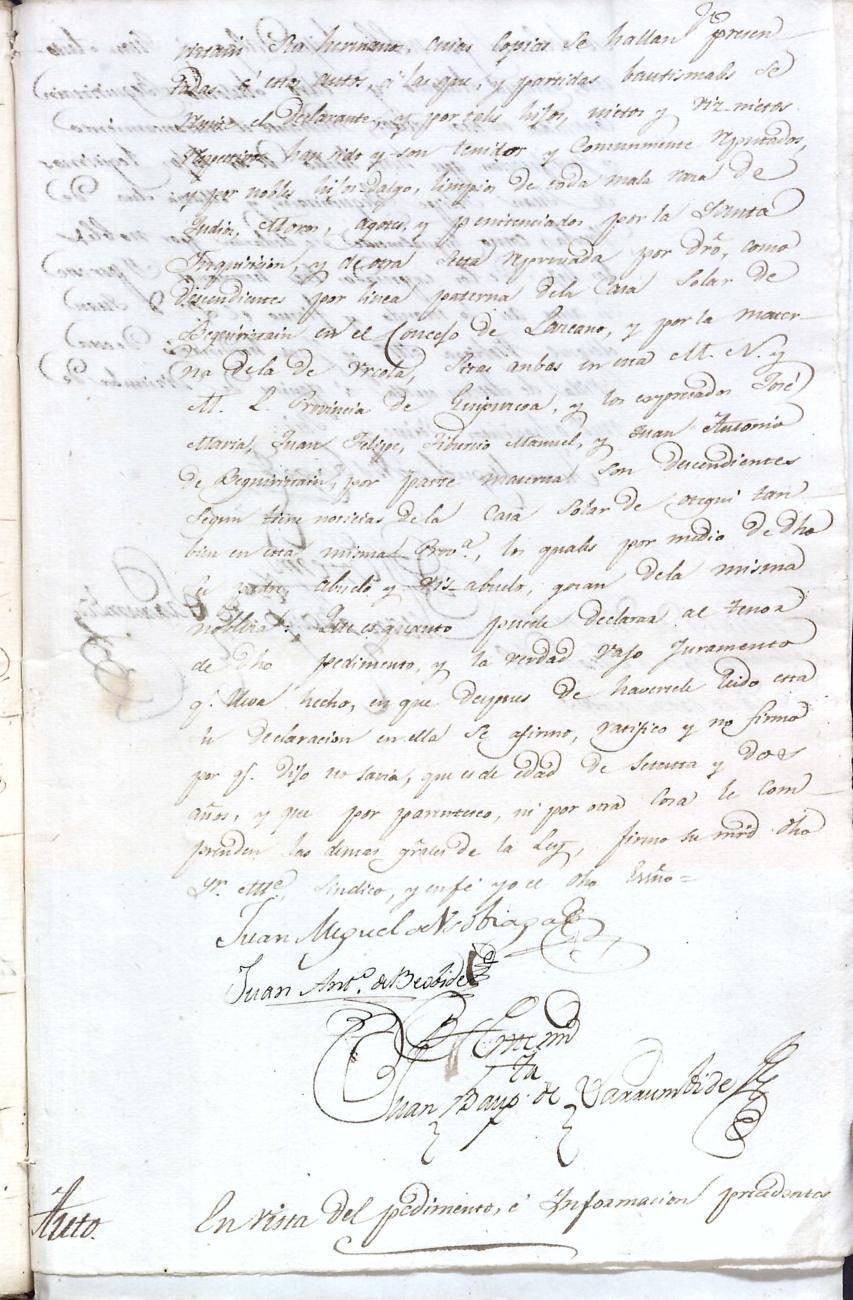 hermano, cuias copias se hallan presen-
tadas á estos autos, á las que, y partidas bautismales se
remite el Declarante, y por tales hijos, nietos y viz-nietos
respective han sido y son tenidos y Comunmente reputados,
y por nobles hijos dalgo, limpios de toda mala raza de
Judios, Moros, agotes, y penitenciados por la Santa
Inquisicion, y de otra secta reprovada por dro, como
descendientes por linea paterna dela Casa Solar de
Beguiriztain en el Concejo de Lazcano, y por la mater-
na dela de Urcola, sitas ambas en esta M. N. y
M. L. Provincia de Guipuzcoa, y los expresados José
Maria, Juan Felipe, Tiburcio Manuel, y Juan Antonio
de Beguiriztain, por parte materna son descendientes
segun tiene noticias dela Casa Solar de Otegui tan-
bien en esta misma Prov.ª, los quales por medio de dho
su padre, abuelo y vis-abuelo, gozan dela misma
nobleza: Que es quanto puede declarar al tenor
de dho pedimento, y la verdad vajo Juramento
q.e lleva hecho, en que despues de haversele leido esta
su declaracion en ella se afirmo, ratifico y no firmó
por q.e dijo no savia, que es de edad de setenta y dos
años, y que por parentesco, ni por otra cosa le com-
prenden las demas grâles de la Ley, firmo su mrd dho
Sr. Alc.e, Sindico, y en fé yo el dho Esño =
Juan Miguel de
Juan Ant.o de Beobide
Ante mi
Juan Baup.ta de Larrumbide
Auto. En vista del pedimento, é Informacion precedentes